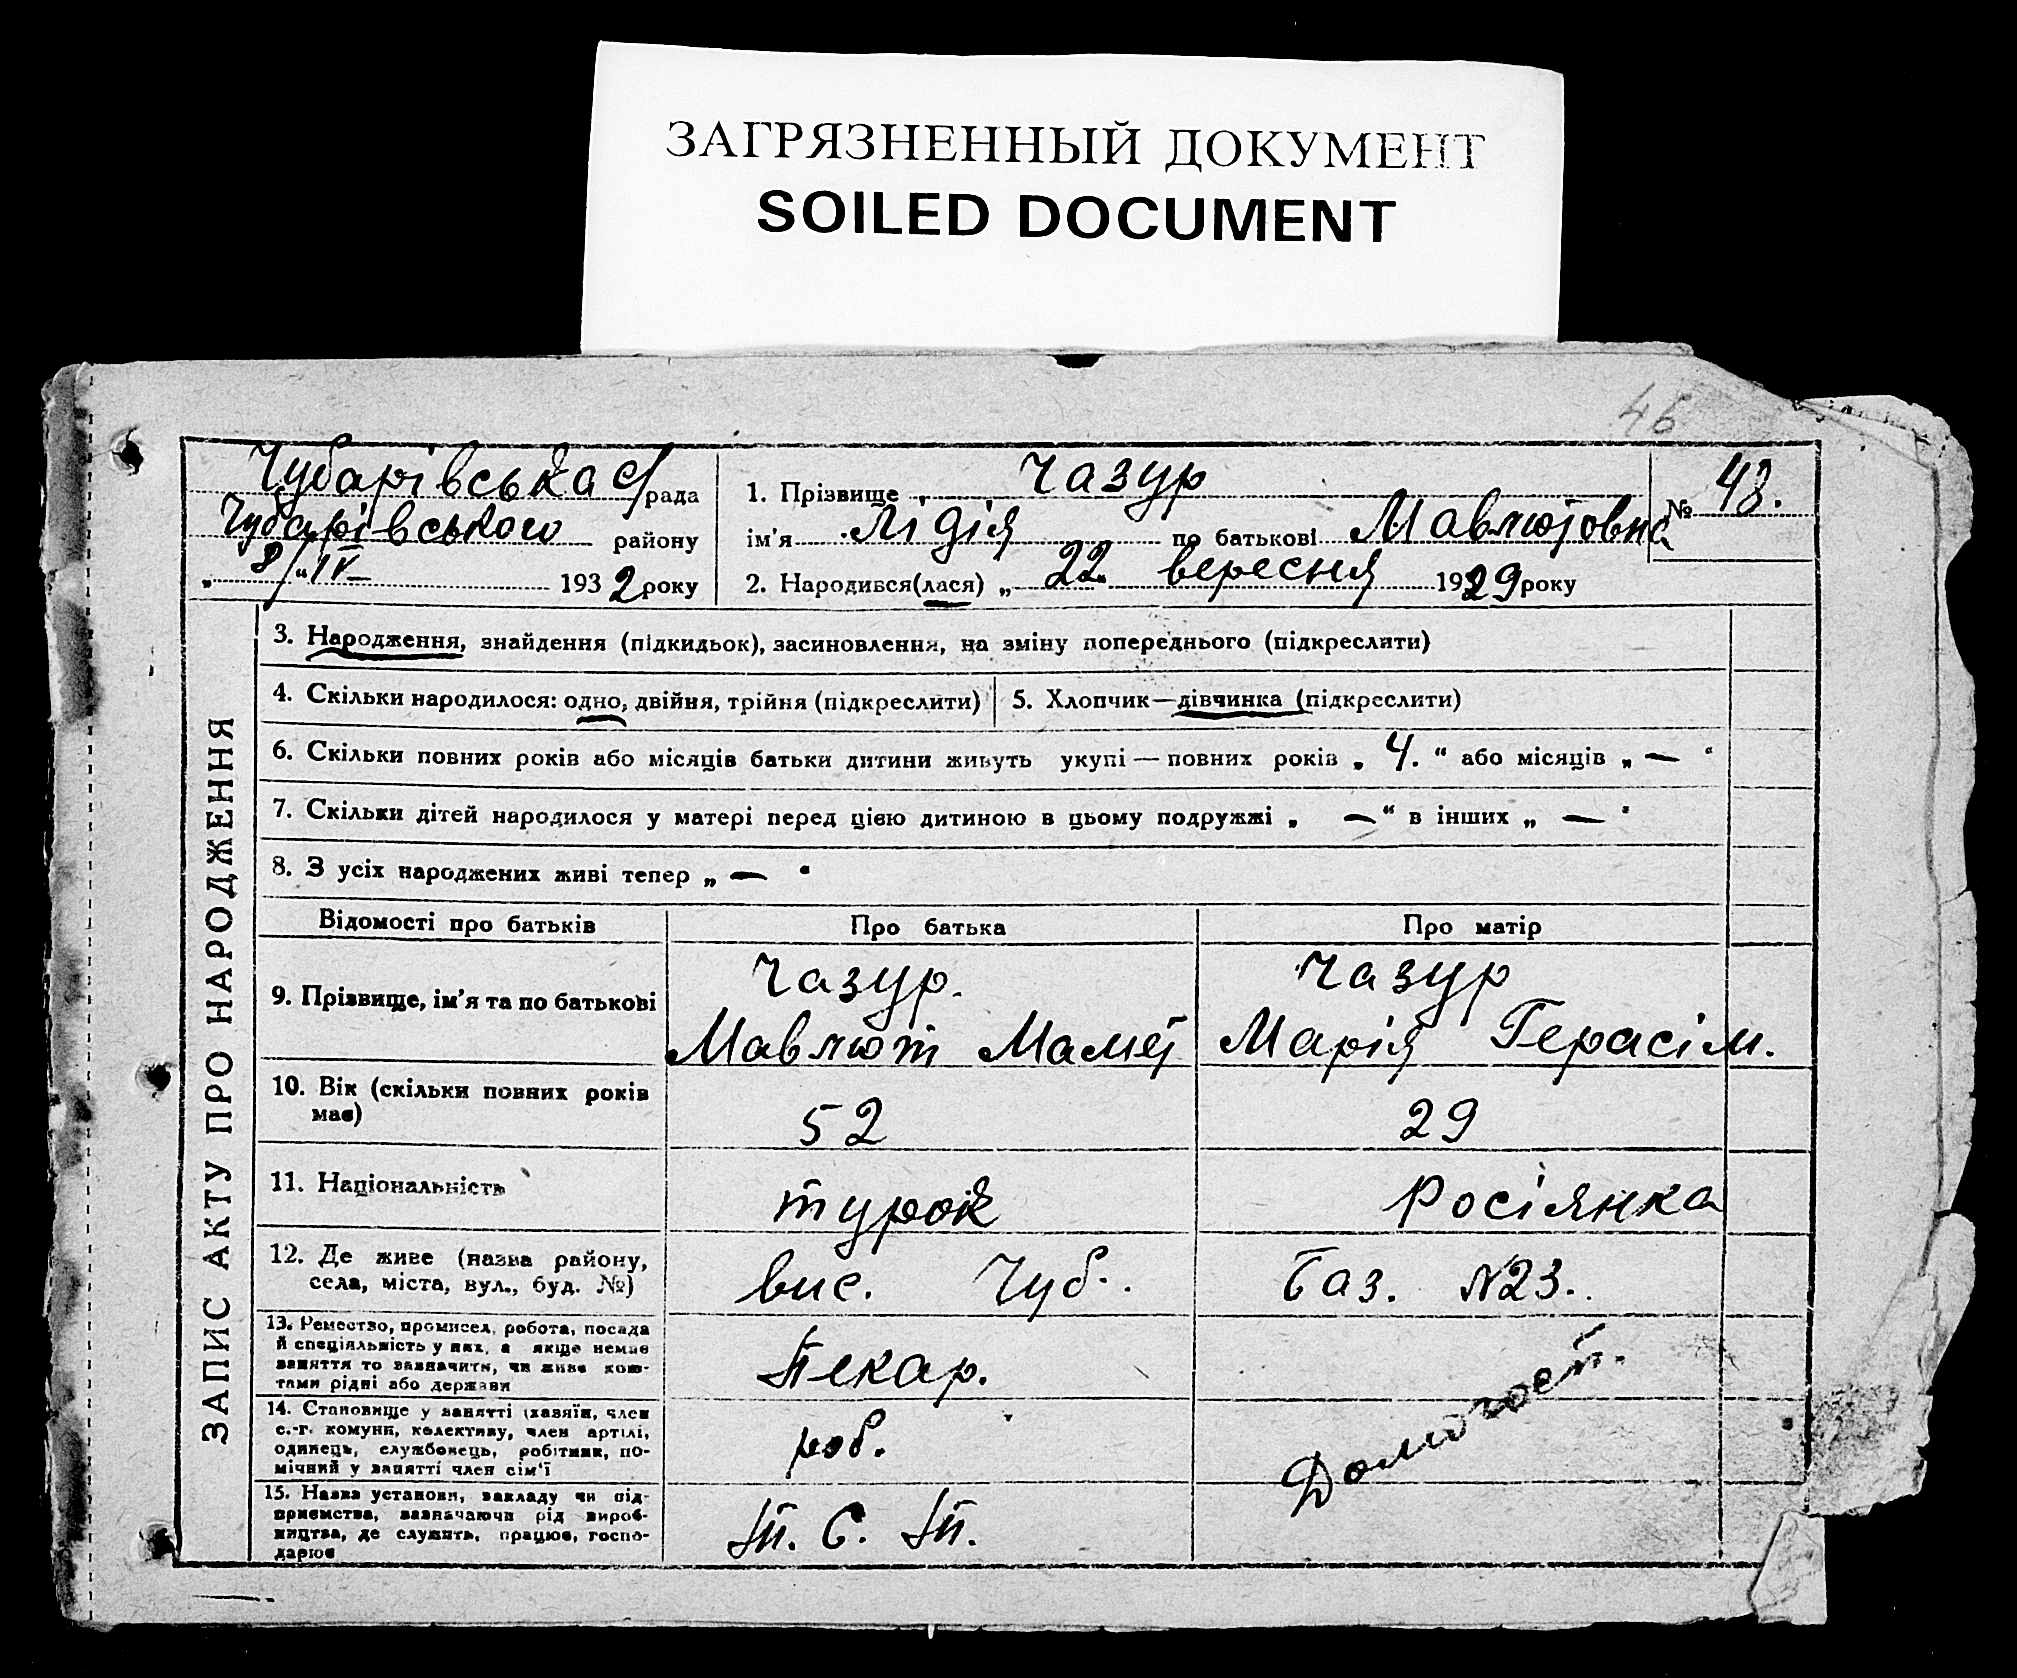 ЗАГРЯЗНЕННЫЙ ДОКУМЕНТ
SOILED DOCUMENT
46
Чубарівська с/рада
Чубарівського району
„8/“ IV 1932 року
1. Прізвище Чазур
№ 48.
ім'я Лідія по батькові Мавлютовна
2. Народився(лася) „22“ вересня 1929 року
ЗАПИС АКТУ ПРО НАРОДЖЕННЯ
3. Народження, знайдення (підкидьок), засиновлення, на зміну попереднього (підкреслити)
4. Скільки народилося: одно, двійня, трійня (підкреслити)
5. Хлопчик—дівчинка (підкреслити)
6. Скільки повних років або місяців батьки дитини живуть укупі — повних років „4.“ або місяців „—“
7. Скільки дітей народилося у матері перед цією дитиною в цьому подружжі „—“ в інших „—“
8. З усіх народжених живі тепер „—“
Відомості про батьків Про батька Про матір
9. Прізвище, ім'я та по батькові
Чазур.
Мавлют Мамет
Чазур
Марія Герасім.
10. Вік (скільки повних років
має)
52
29
11. Національність
турок
Росіянка
12. Де живе (назва району,
села, міста, вул., буд. №)
вис. Чуб. баз. №23.
13. Ремество, промисел, робота, посада
й спеціяльність у них, а якщо немає
заняття то зазначити, чи живе кош-
тами рідні або держави
Пекар.
Домогосп.
14. Становище у занятті (хазяїн, член
с.-г. комуни, колективу, член артілі,
одинець, службовець, робітник, по-
мічний у занятті член сім'ї
роб.
15. Назва установи, закладу чи під-
приємства, зазначаючи рід вироб-
ництва, де служить, працює, госпо-
дарює
П. С. П.